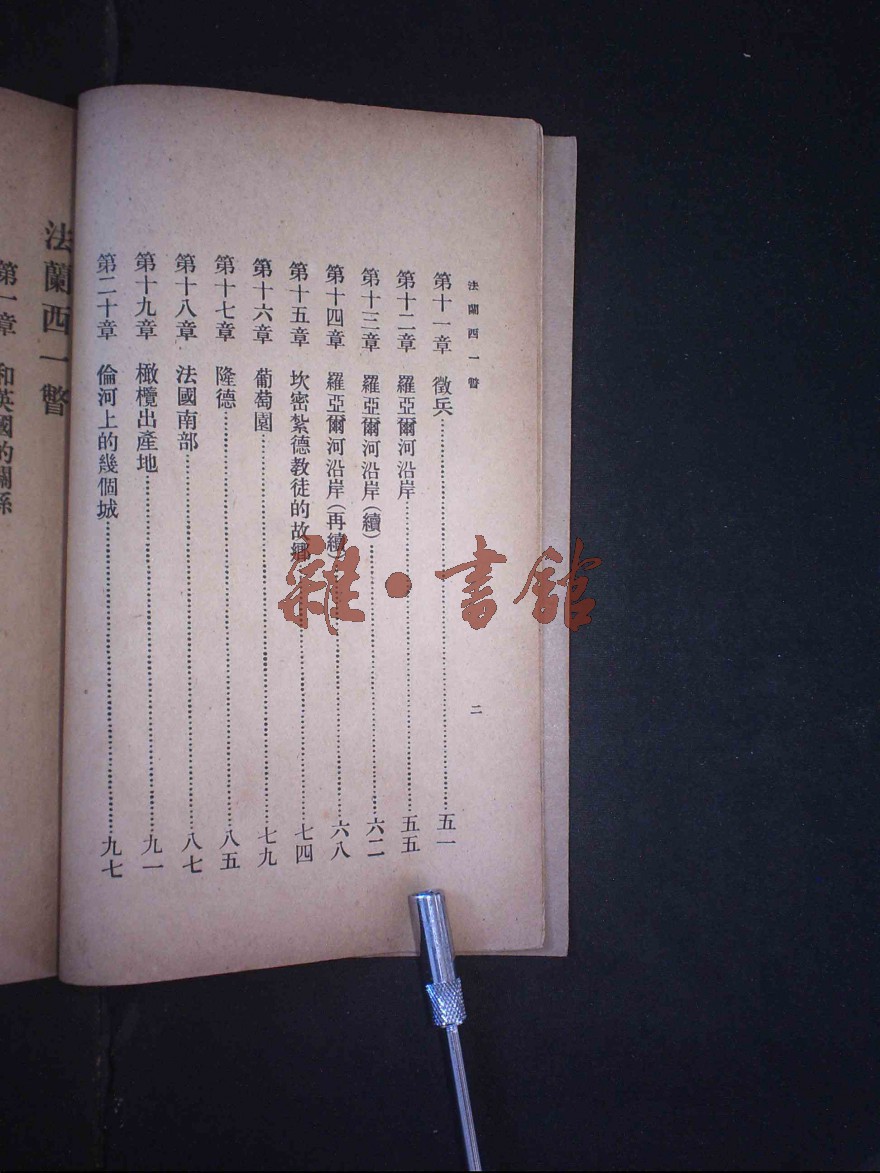 法蘭西一瞥
二
第十一章 徵兵……五一
第十二章 羅亞爾河沿岸……五五
第十三章 羅亞爾河沿岸(續)……六二
第十四章 羅亞爾河沿岸(再續)……六八
第十五章 坎密紮德教徒的故鄉……七四
第十六章 葡萄園……七九
第十七章 隆德……八五
第十八章 法國南部……八七
第十九章 橄欖出產地……九一
第二十章 倫河上的幾個城……九七
法蘭西一瞥
第一章 和英國的關係
雜·書館